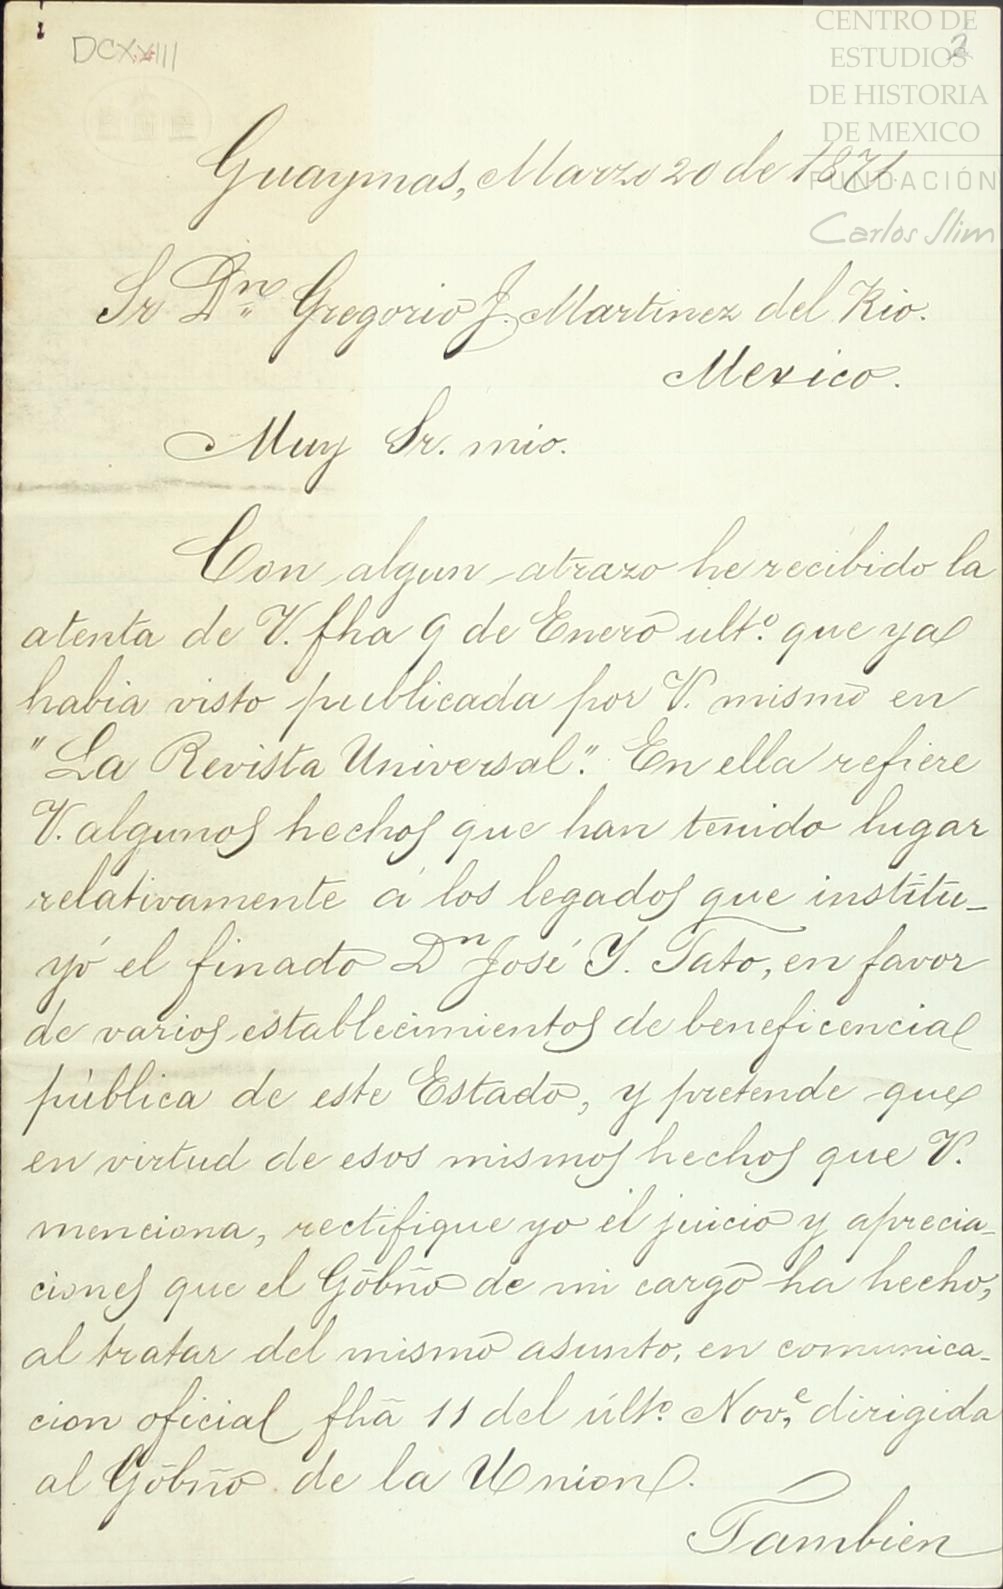 DCXXIII
2
CENTRO DE
ESTUDIOS
DE HISTORIA
DE MEXICO
FUNDACIÓN
Carlos Slim
Guaymas, Marzo 20 de 1871.
Sr. Dn. Gregorio J. Martinez del Rio.
Mexico.
Muy Sr. mio.
Con algun atrazo he recibido la
atenta de V. fha 9 de Enero ultº. que ya
habia visto publicada por V. mismo en
"La Revista Universal". En ella refiere
V. algunos hechos que han tenido lugar
relativamente á los legados que institu-
yó el finado Dn José Y. Tato, en favor
de varios establecimientos de beneficencia
pública de este Estado, y pretende que
en virtud de esos mismos hechos que V.
menciona, rectifique yo el juicio y aprecia-
ciones que el Gobño de mi cargo ha hecho,
al tratar del mismo asunto, en comunica-
cion oficial fhã 11 del últº. Nove. dirigida
al Gobño de la Union.
Tambien